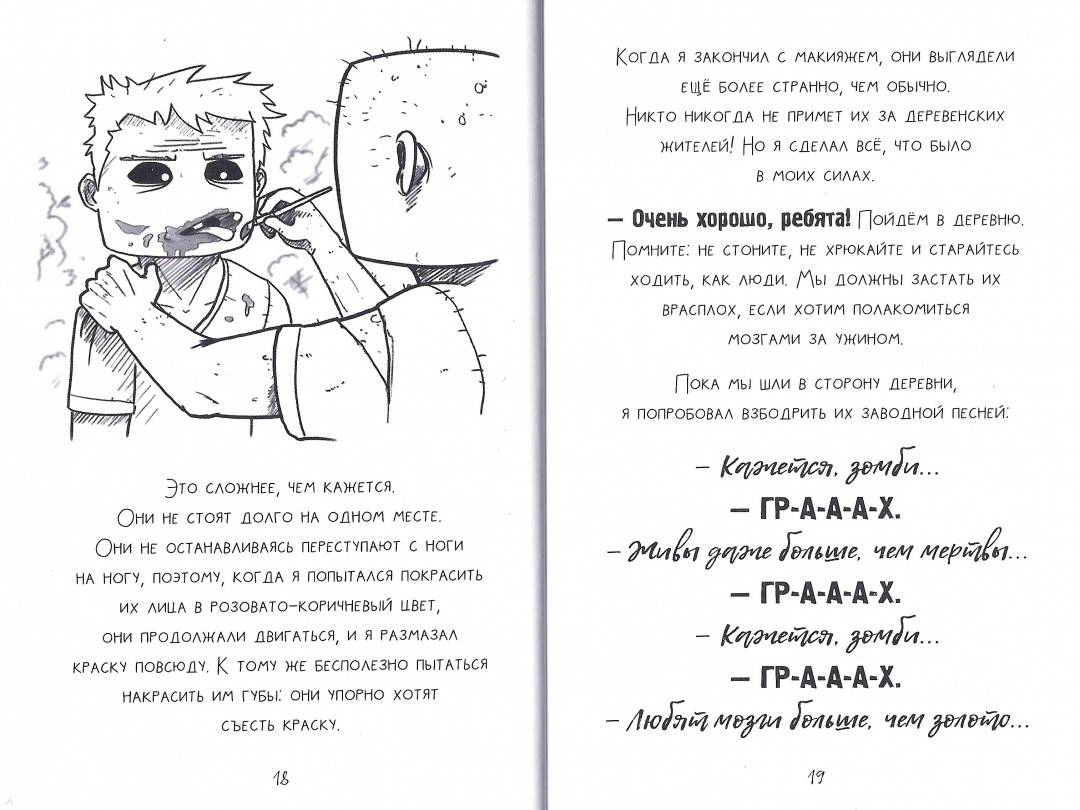 Это сложнее, чем кажется.
Они не стоят долго на одном месте.
Они не останавливаясь переступают с ноги
на ногу, поэтому, когда я попытался покрасить
их лица в розовато-коричневый цвет,
они продолжали двигаться, и я размазал
краску повсюду. К тому же бесполезно пытаться
накрасить им губы: они упорно хотят
съесть краску.
18
Когда я закончил с макияжем, они выглядели
ещё более странно, чем обычно.
Никто никогда не примет их за деревенских
жителей! Но я сделал всё, что было
в моих силах.
– Очень хорошо, ребята! Пойдём в деревню.
Помните: не стоните, не хрюкайте и старайтесь
ходить, как люди. Мы должны застать их
врасплох, если хотим полакомиться
мозгами за ужином.
Пока мы шли в сторону деревни,
я попробовал взбодрить их заводной песней:
– Кажется, зомби...
– ГР-А-А-А-Х.
– Живы даже больше, чем мертвы...
– ГР-А-А-А-Х.
– Кажется, зомби...
– ГР-А-А-А-Х.
– Любят мозги больше, чем золото...
19